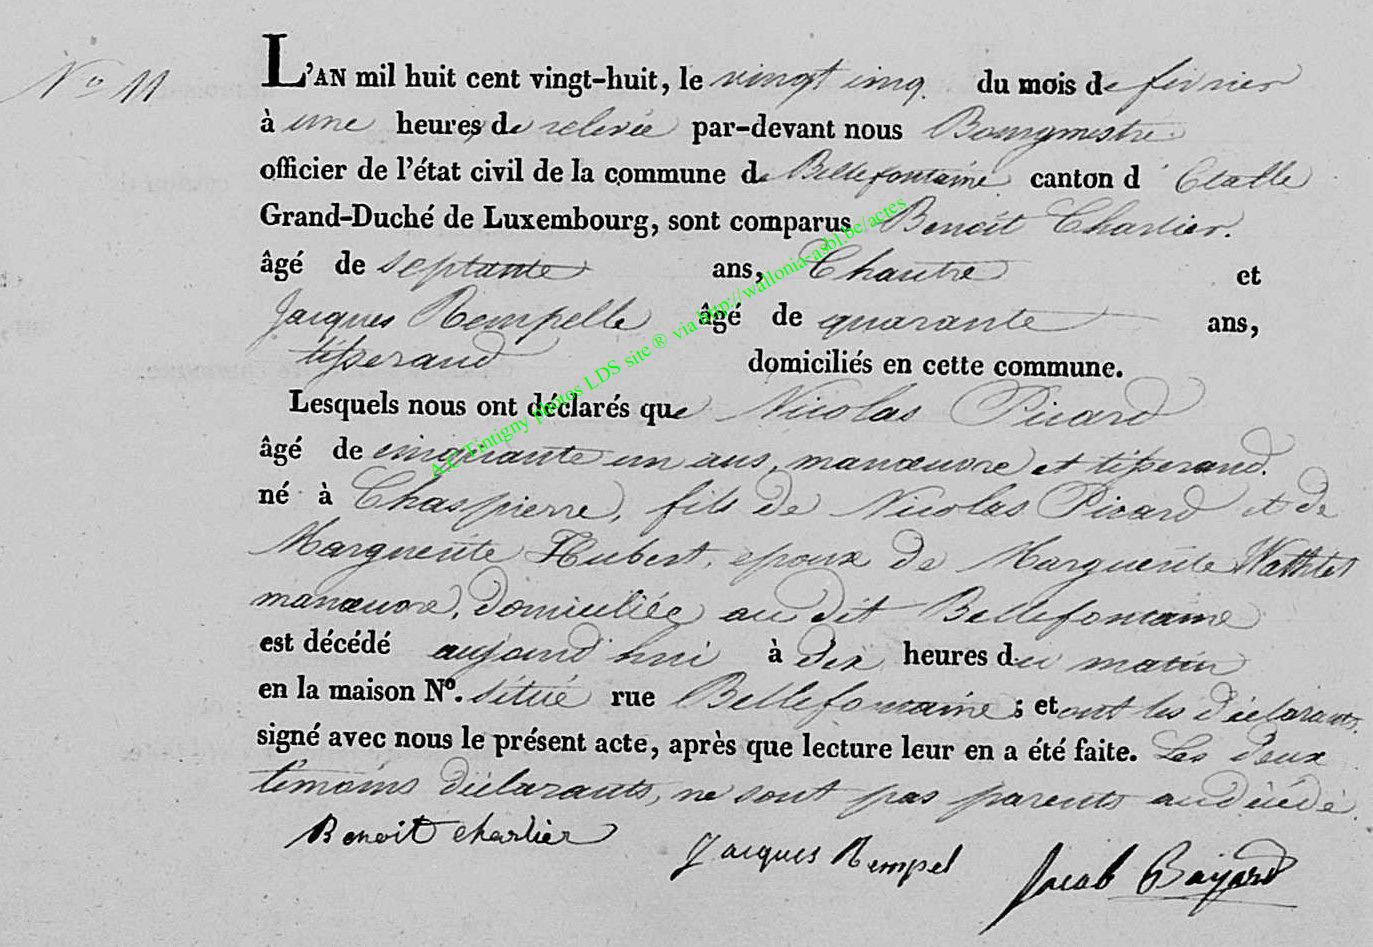 N° 11
L'AN mil huit cent vingt-huit, le vingt cinq du mois de février
à une heures de relevée par-devant nous Bourgmestre
officier de l'état civil de la commune de Bellefontaine canton d' Etalle
Grand-Duché de Luxembourg, sont comparus Benoit Charlier.
âgé de septante ans, Chantre et
Jacques Rempelle âgé de quarante ans,
tisserand domiciliés en cette commune.
Lesquels nous ont déclarés que Nicolas Picard
âgé de cinquante un ans, manœuvre et tisserand.
né à Chaspierre, fils de Nicolas Picard et de
Marguerite Hubert, epoux de Marguerite Wathlet
manœuvre, domiciliée au dit Bellefontaine
est décédé aujourd'hui à dix heures du matin
en la maison N°. situé rue Bellefontaine ; et ont les déclarants
signé avec nous le présent acte, après que lecture leur en a été faite. Les deux
témoins déclarants, ne sont pas parents au décédé.
Benoit Charlier Jacques Rempel Jacob Bayard
A.E. Tintigny photos LDS site ® via http://wallonia-asbl.be/actes